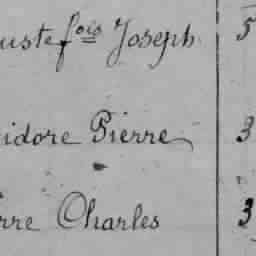 uste fois Joseph 5
idore Pierre 3
rre Charles 3